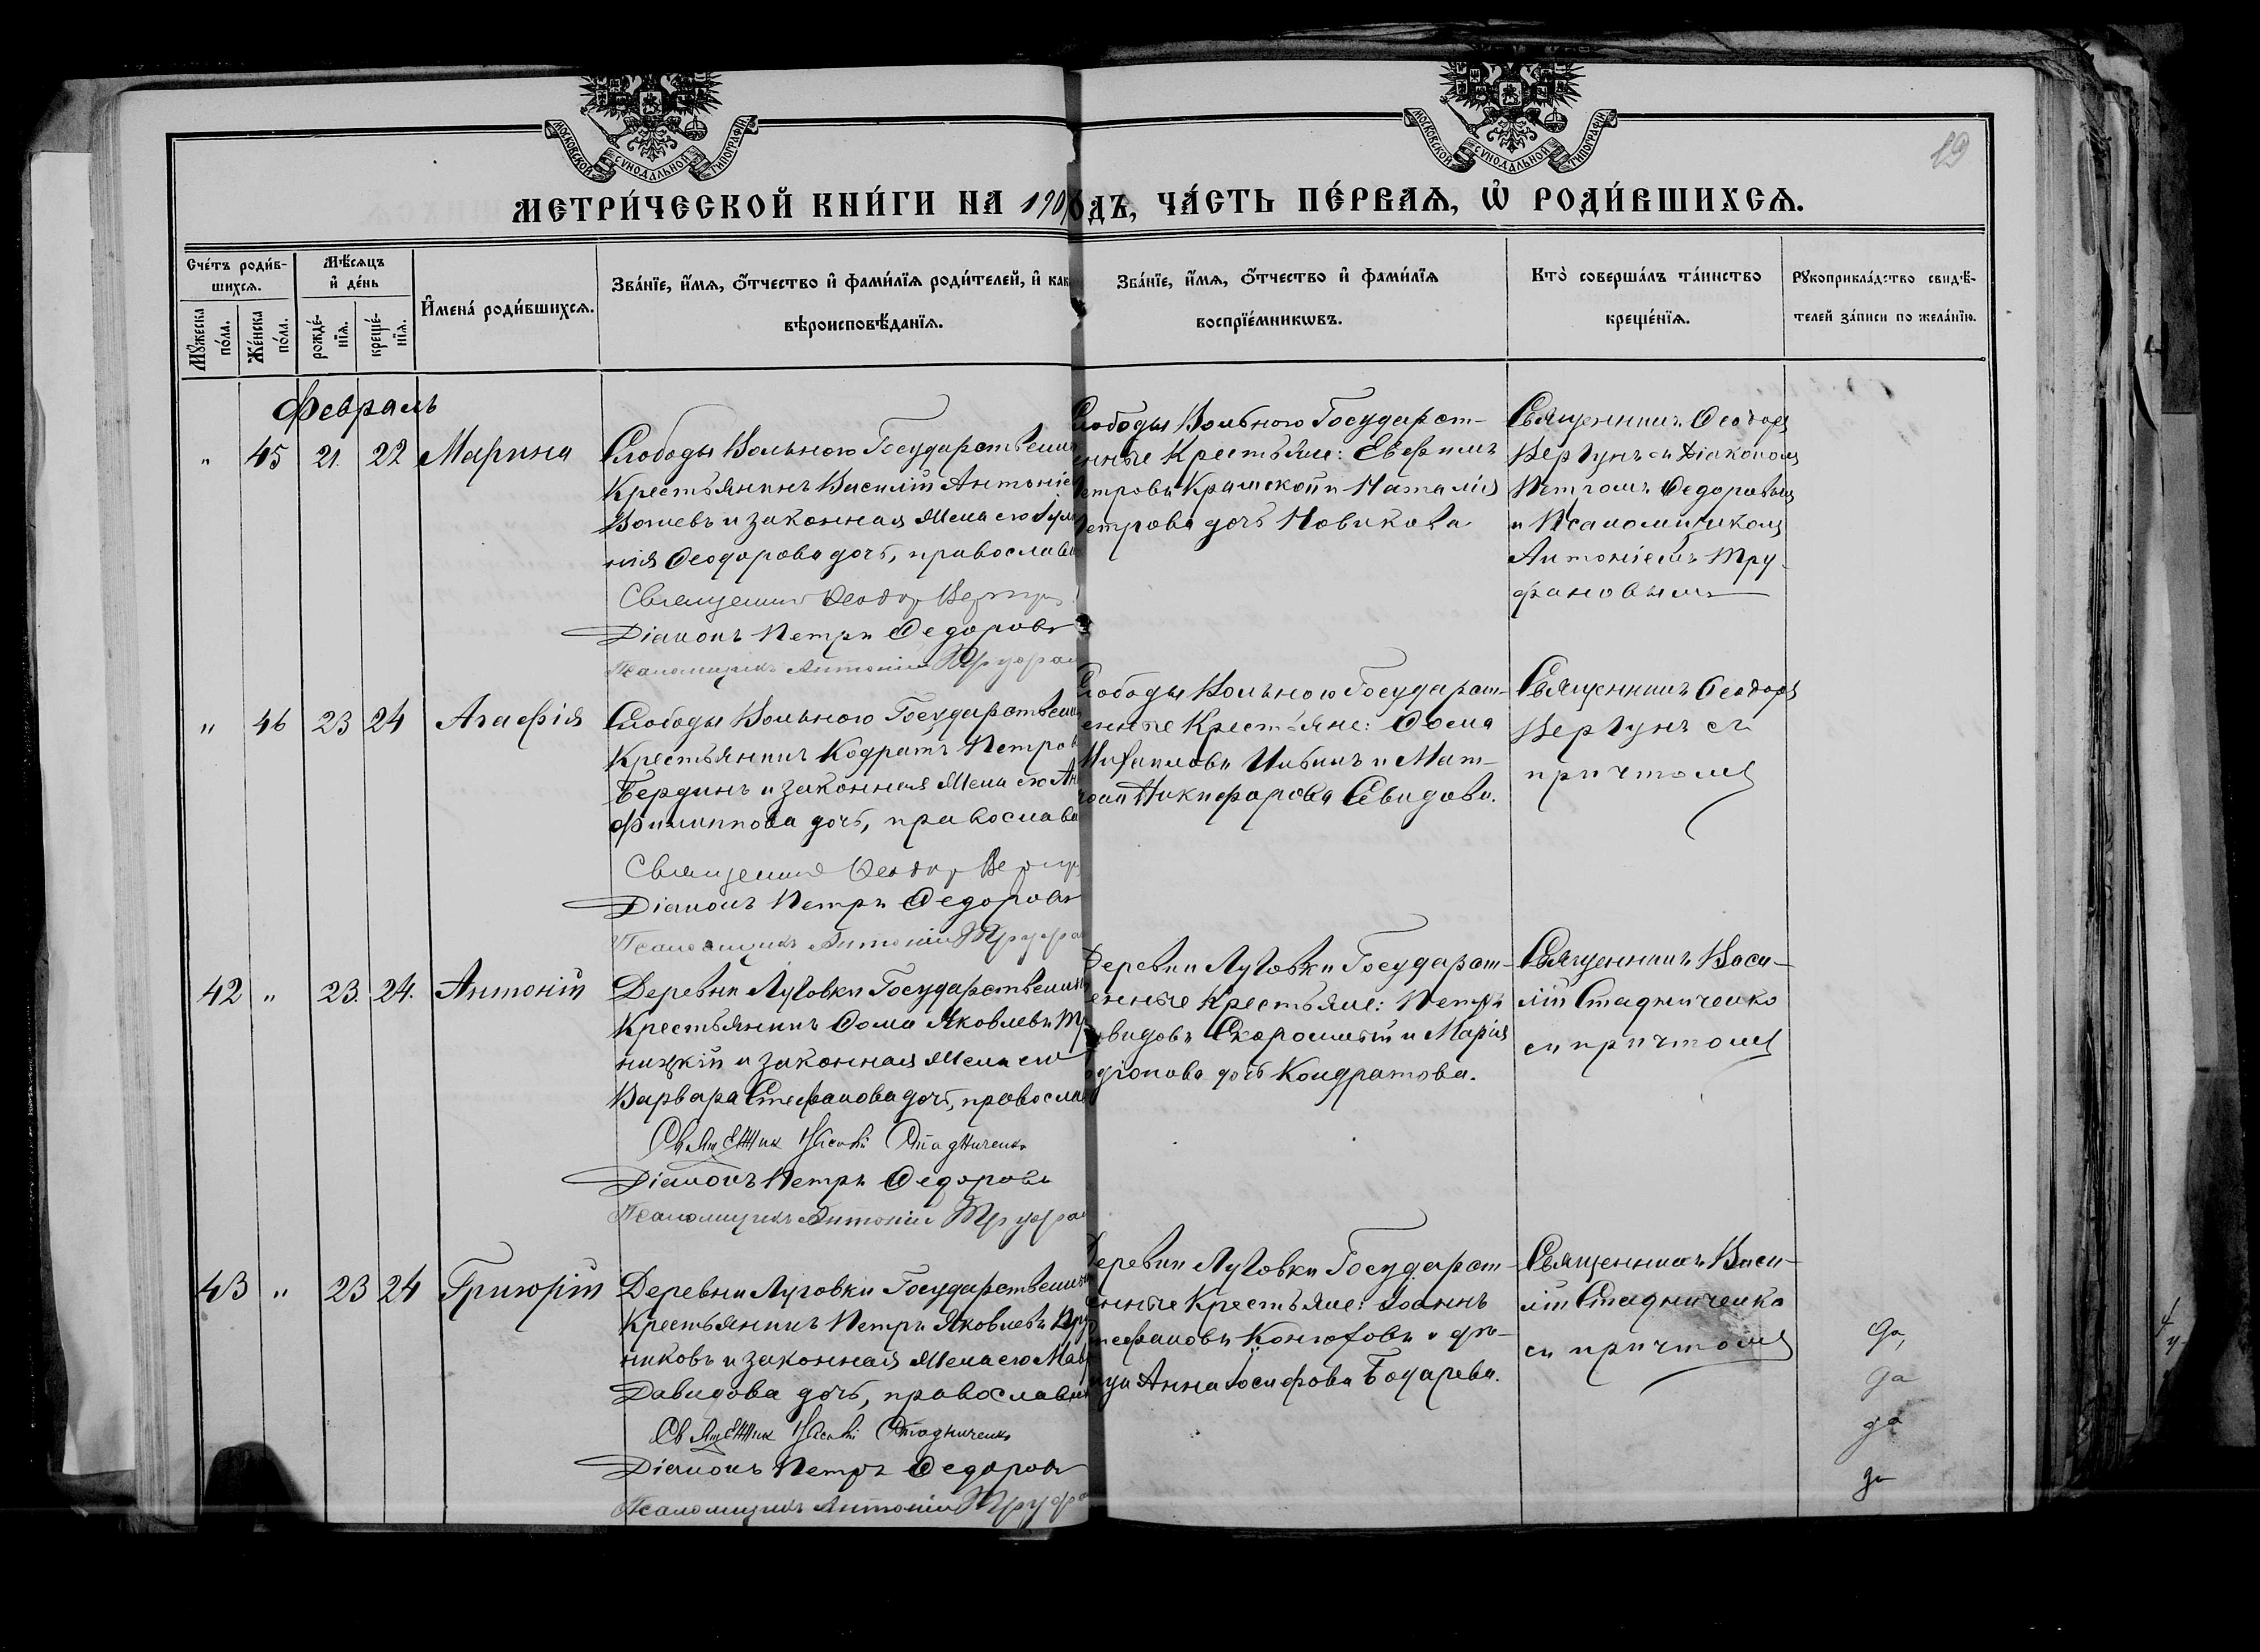 МОСКОВСКОЙ СУНОДАЛЬНОЙ ТИПОГРАФІИ
МОСКОВСКОЙ СУНОДАЛЬНОЙ ТИПОГРАФІИ
19
МЕТРИ́ЧЕСКОЙ КНИ́ГИ НА 190 ДЪ, ЧА́СТЬ ПЕ́РВАѦ, Ѡ҆ РОДИ́ВШИХСѦ.
Сче́тъ роди́в-
шихсѧ.
Мꙋ́жеска по́ла.
Же́нска по́ла.
Мѣ́сѧцъ и҆ де́нь
рожде́-нїѧ.
креще́-нїѧ.
И҆мена̀ роди́вшихсѧ.
Зва́нїе, и҆́мѧ, ѻ҆́тчество и҆ фами́лїѧ роди́телей, и҆ как
вѣроисповѣ́данїѧ.
Зва́нїе, и҆́мѧ, ѻ҆́тчество и҆ фами́лїѧ
воспрїе́мникѡвъ.
Кто̀ соверша́лъ та́инство
креще́нїѧ.
Рꙋкоприкла́дство свидѣ́-
телей за́писи по жела́нїю.
Февраль
" 45 21. 22 Марина
Слободы Вольного Государственны
Крестьянинъ Василій Антоніе
и законная жена его
нія Ѳеодорова дочь, православ
Священник Ѳеодор Вергун
Діаконъ Петръ Ѳедоровъ
Псаломщикъ Антоній Труфан
Слободы Вольного Государст-
енные Крестьяне: Евфимъ
Петровъ Крамской и Наталія
Петрова дочь Новикова
Священникъ Ѳеодоръ
Вергунъ съ Діакономъ
Петромъ Ѳедоровымъ
и Псаломщикомъ
Антоніемъ Тру-
фановымъ
" 46 23 24 Агафія
Слободы Вольного Государственны
Крестьянинъ Кодратъ Петров
Бердинъ и законная жена его Ан
Филиппова дочь, православ
Священник Ѳеодор Вергун
Діаконъ Петръ Ѳедоровъ
Псаломщикъ Антоній Труфа
Слободы Вольного Государст-
енные Крестьяне: Ѳома
Михаиловъ и Мат-
рона Никифорова
Священникъ Ѳеодоръ
Вергунъ съ
причтомъ
42 " 23. 24. Антоній
Деревни Луговки Государственны
Крестьянинъ Ѳома Яковлевъ
ницкій и законная жена его
Варвара Стефанова дочь, правосла
Священник Василій Стадниченко
Діаконъ Петръ Ѳедоровъ
Псаломщикъ Антоній Труфан
Деревни Луговки Государст-
енные Крестьяне: Петръ
видовъ и Марія
дочь Кондратова.
Священникъ Васи-
лій Стадниченко
съ причтомъ
43 " 23 24 Григорій
Деревни Луговки Государственны
Крестьянинъ Петръ Яковлевъ
никовъ и законная жена его Мав
Давидова дочь, православ
Священник Василій Стадниченко
Діаконъ Петръ Ѳедоровъ
Псаломщикъ Антоній Труфа
Деревни Луговки Государст-
енные Крестьяне: Іоаннъ
тефановъ Конюховъ и дѣ-
Анна Іосифова
Священникъ Васи-
лій Стадниченко
съ причтомъ
да,
да
да
да